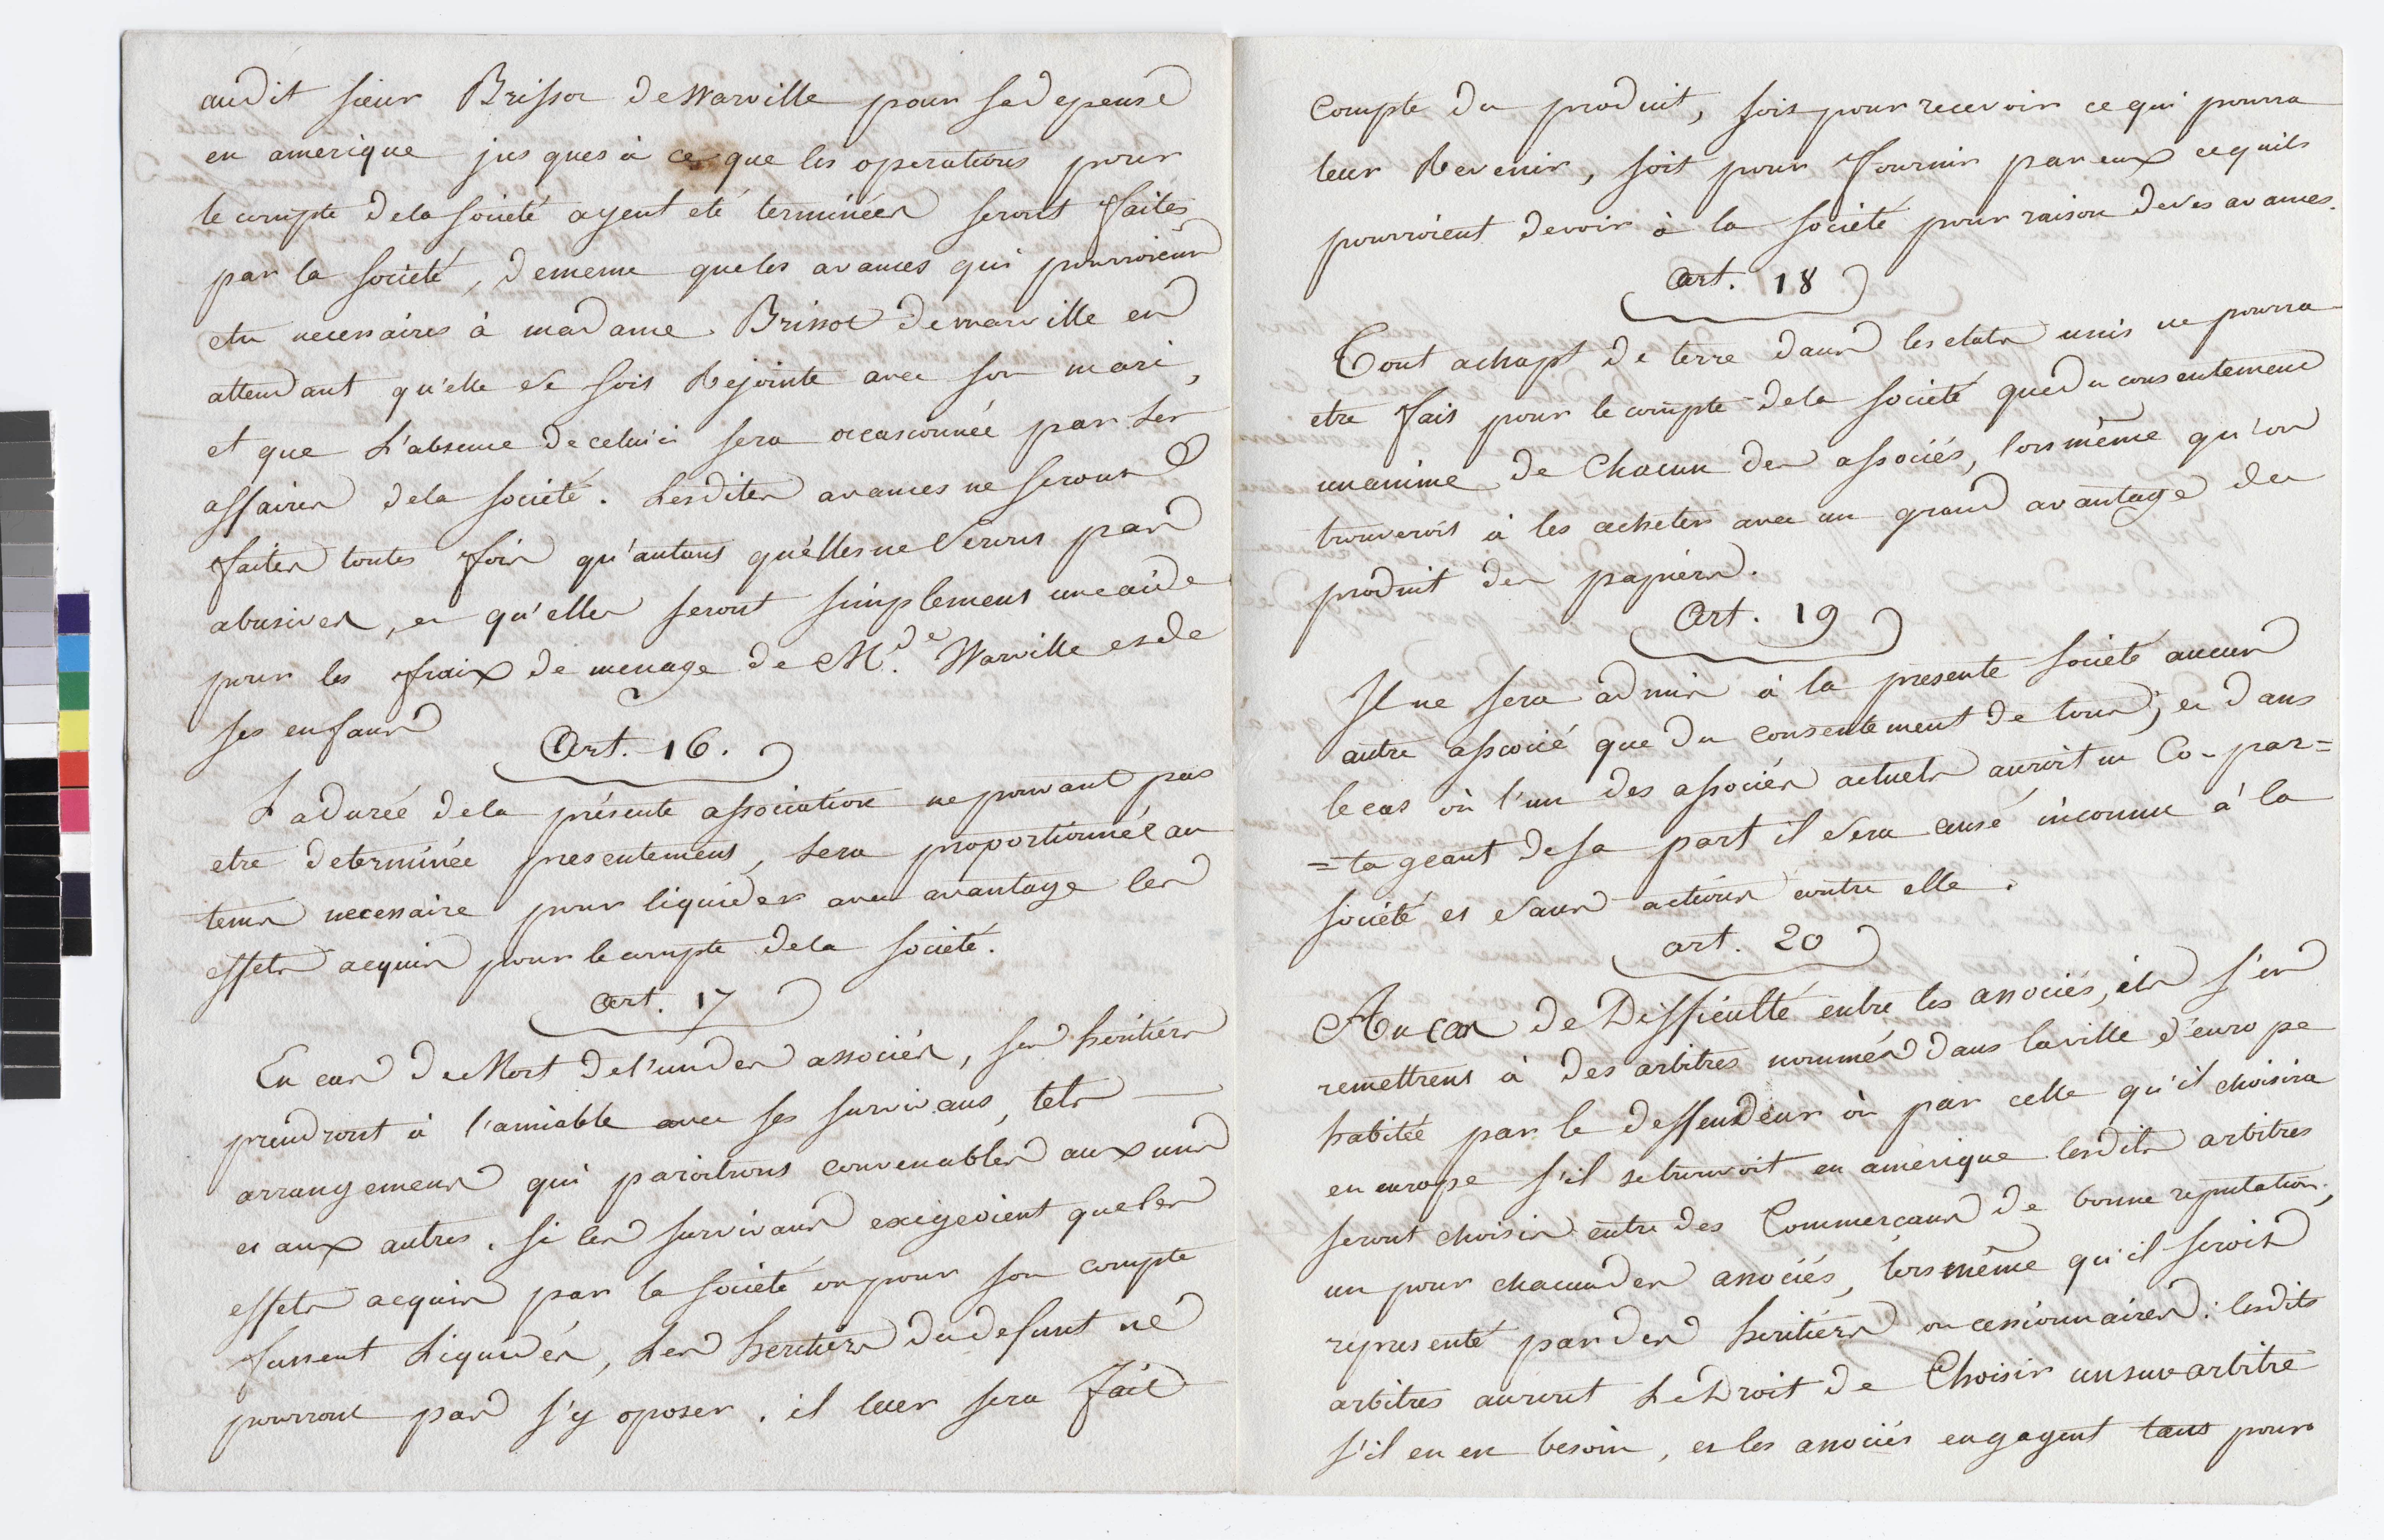 audit sieur Brissot de Warville pour sa depense
en amerique jusques à ce que les operations pour
le compte dela société ayent eté terminées seront faites
par la société, dememe queles avances qui pourroient
etre necessaires à madame Brissot dewarville en
attendant qu'elle se soit Rejointe avec son mari,
et que L'absence decelui ci sera occasionnée par les
affaires dela société. Lesdites avances ne seront
faites toutes fois qu'autant qu'elles ne seront pas
abusives, et qu'elles seront simplement une aide
pour les fraix de menage de Mde. Warville et de
ses enfans
Art. 16.
La durée dela présente association ne pouvant pas
etre determinée presentement, sera proportionnée au
tems necessaire pour liquider avec avantage les
effets acquis pour le compte dela société.
art. 17
En cas de Mort de l'un des associés, ses héritiers
prendront à l'amiable avec ses survivans, tels
arrangemens qui paroitront convenables aux uns
et aux autres. si les survivans exigeoient que les
effets acquis par la société ou pour son compte
fussent Liquidés, Les heritiers du defunt ne
pourront pas s'y oposer. il leur sera fait
compte du produit, soit pour recevoir ce qui pourra
leur Revenir, soit pour fournir par eux ce quils
pourroient devoir à la société pour raison de ses avances.
art. 18
Tout achapt de terre dans les etats unis ne pourra
etre fait pour le compte dela société que du consentement
unanime de Chacun des associés, lors même qu'on
trouveroit à les acheter avec un grand avantage du
produit des papiers.
Art. 19
Il ne sera admis à la presente société aucun
autre associé que du consentement de tous; et dans
le cas où l'un des associés actuels auroit un Co-par=
=tageant de sa part il sera censé inconnu à la
société et sans action contre elle.
art. 20
Au cas de Difficulté entre les associés, ils s'en
remettrent à des arbitres nommés dans la ville d'europe
habitée par le deffendeur où par celle qu'il choisira
en europe s'il se trouvoit en amérique lesdits arbitres
seront choisis entre des Commerçans de bonne reputation,
un pour chacun des associés, lors même qu'il seroit
representé par des héritiers ou cessionnaires: lesdits
arbitres auront Le Droit de Choisir un sur arbitre
s'il en est besoin, et les associés engagent tous pour